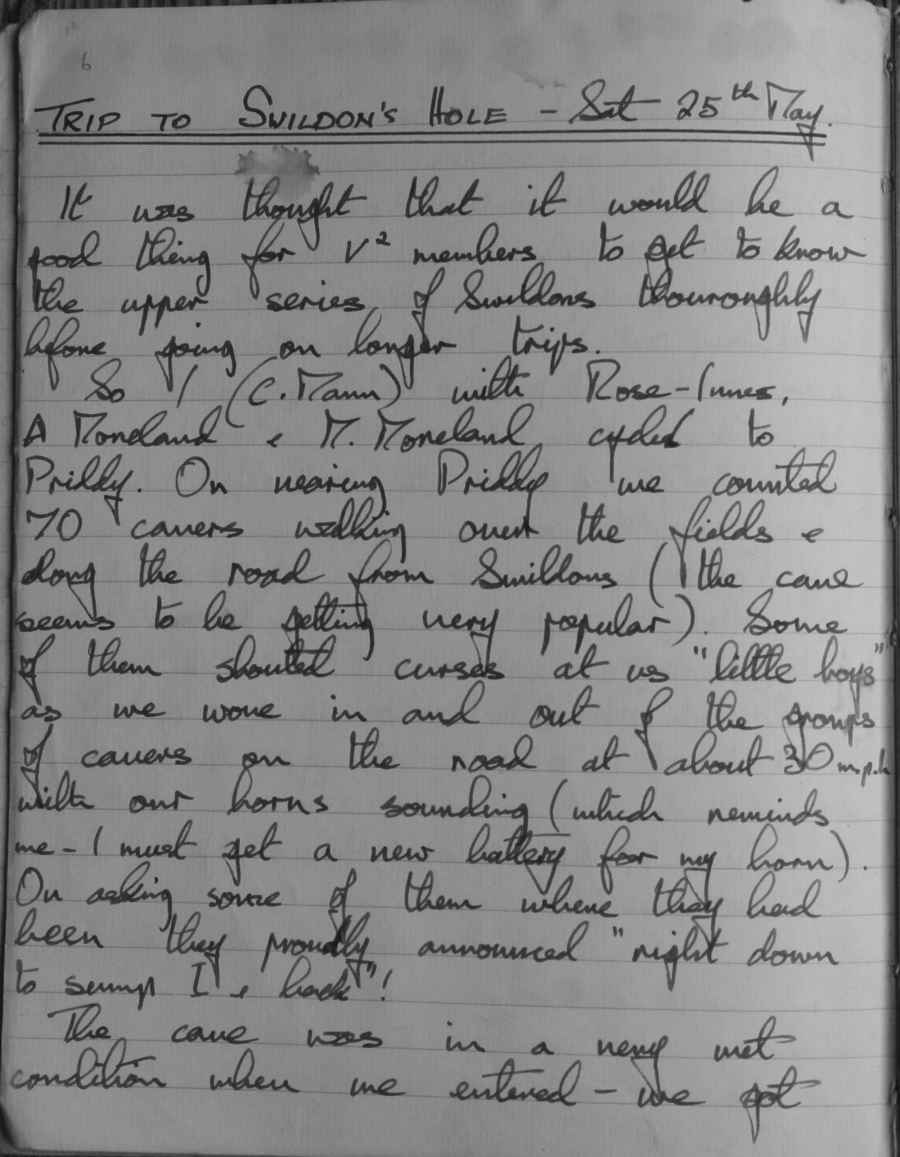 6
TRIP TO SWILDON'S HOLE - Sat 25th May.
It was thought that it would be a
good thing for V² members to get to know
the upper series of Swildons thouroughly
before going on longer trips.
So I (C. Mann) with Rose-Innes,
A Moreland & M. Moreland cycled to
Priddy. On nearing Priddy we counted
70 cavers walking over the fields &
along the road from Swildons (the cave
seems to be getting very popular). Some
of them shouted curses at us "little boys"
as we wove in and out of the groups
of cavers on the road at about 30 m.p.h
with our horns sounding (which reminds
me - I must get a new battery for my horn).
On asking some of them where they had
been they proudly announced "right down
to sump I & back"!
The cave was in a very wet
condition when we entered - we got